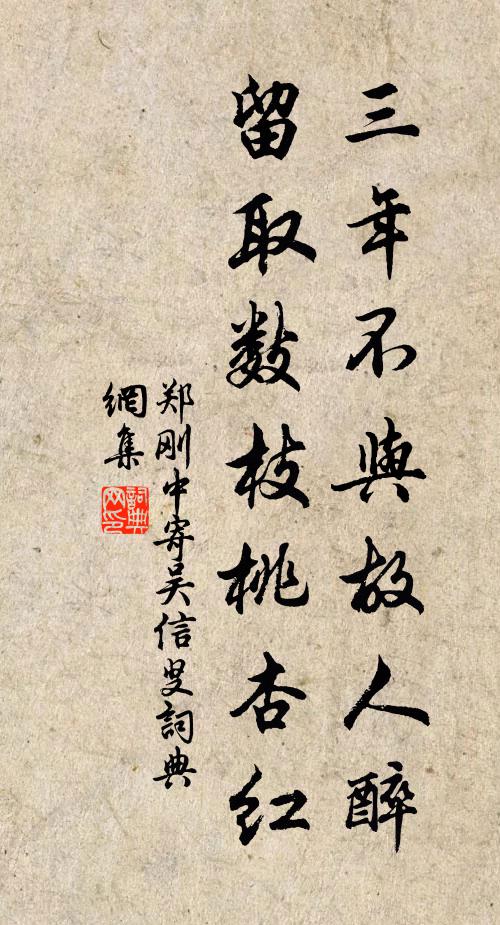 三年不與故人醉
留取数枝桃杏红
郑刚中寄吴信叟詞典
網集
詞典网印